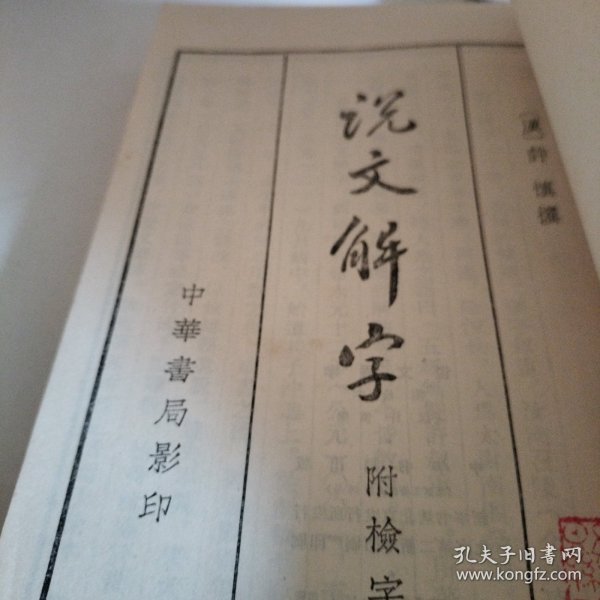 漢許慎撰
说文解字
附檢字
中華書局影印
孔夫子旧书网
www.kongfz.com